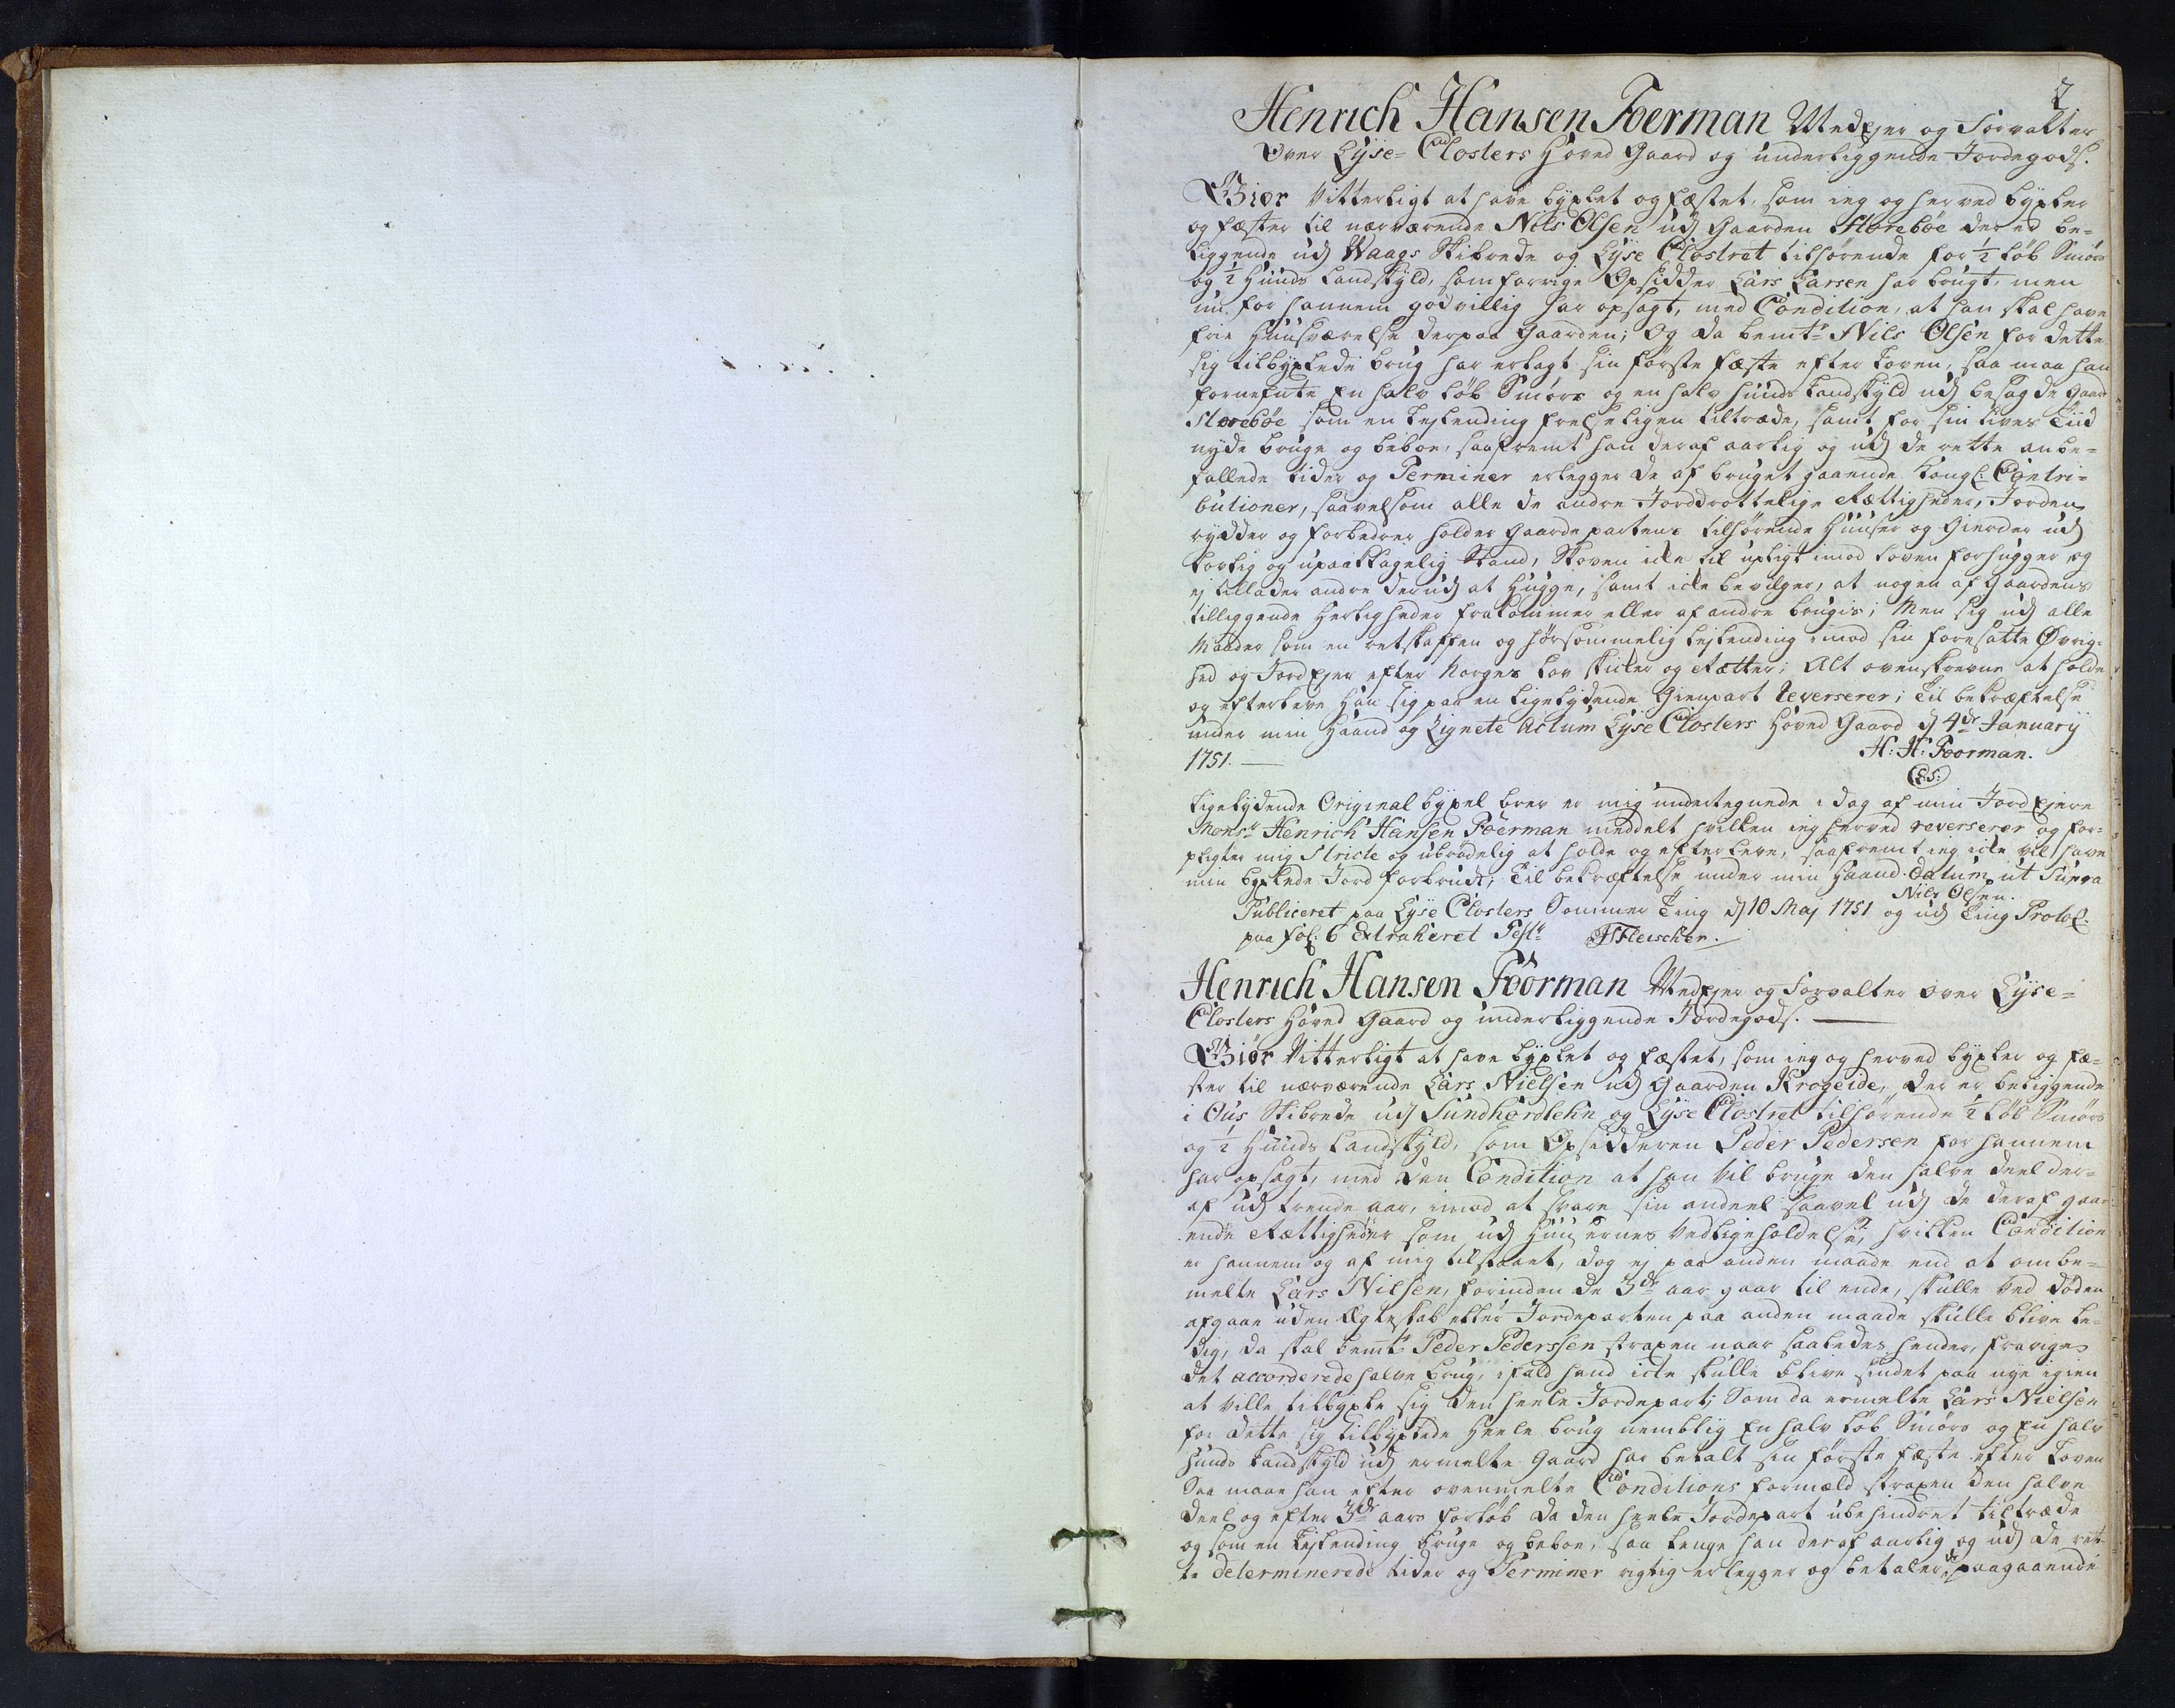 2.
Henrich Hansen Foerman Medejer og Forvalter
Over Lÿse-Closters Hoved Gaard og underliggende Jordegods.
Giør Vitterligt at have bÿxlet og fæstet, som ieg og herved bÿxler
og fæster til nærværende Nils Olsen udj Gaarden Storebøe der er be-
liggende udj Waags Skibrede og Lÿse Clostret tilhørende for ½ løb Smørs
og ½ Huuds Landskyld, som forrige Opsidder Lars Larsen har brugt, men
nu for hannem godvillig har opsagt, med Condition, at han skal have
frie Huusværelse derpaa Gaarden; Og da bemte Nils Olsen for dette
sig tilbÿxlede brug har erlagt sin første fæste efter Loven, saa maa han
fornefnte En halv løb Smørs og en halv huuds Landskyld udj besagde Gaard
Storebøe som en Leylending frelseligen tiltræde, samt for sin Lives Tiid
nyde bruge og beboe, saafremt han deraf aarlig og udj de rette anbe-
fallede tider og Terminer erlegger de af bruget gaaende Kongl: Contri-
butioner, saavelsom alle de andre Jorddrottelige Rættigheder, Jorden
rydder og forbedrer holder Gaarde partens tilhørende Huuser og Gierder udj
lovlig og upaaklagelig Stand, Skoven icke til upligt imod Loven forhugger og
ej tillader andre derudj at hugge, samt icke bevilger, at nogen af Gaardens
tilliggende herligheder frakommer eller af andre brugis; Men sig udj alle
Maader som en retskaffen og hørsommelig Leylending imod sin foresatte Øvrig-
hed og Jord Ejer efter Norges Lov skicker og Rætter; Alt ovenskrevne at holde
og efterleve han sig paa en ligelydende Gienpart Reverserer; Til bekræftelse
under min Haand og Zignete Actum Lÿse Closters Hoved Gaard d 4de Januarÿ
1751.
H: H: Foorman.
(L:S:)
Ligelydende Original bÿxel brev er mig undertegnede i Dag af min Jord Ejere
Monsr Henrich Hansen Föerman meddelt hvilken ieg herved reverserer og for-
pligter mig Stricte og ubrødelig at holde og efterleve, saafremt ieg icke vil have
min byxlede Jord forbrudt; Til bekræftelse under min Haand. Datum ut Supra
Nils Olsen.
Publiceret paa Lÿse Closters Sommer Ting d 10 Maj 1751 og udj Ting Protol.
paa fol: 6 Extraheret Testr Fleischer.
Henrich Hansen Föorman Medejer og Forvalter over Lÿse-
Closters Hoved Gaard og underliggende Jordegods.
Giør Vitterligt at have byxlet og fæstet, som ieg og herved byxler og fæ-
ster til nærværende Lars Nielsen udj Gaarden Krogeide, der er beliggende
i Ous Skibrede udj Sundhordlehn og Lÿse Clostret tilhørende ½ løb Smørs
og ½ Huuds Landskyld, som Opsidderen Peder Pedersen for hannem
har opsagt, med den Condition at han vil bruge den halve deel der-
af udj trende aar, imod at svare sin andeel saavel udj de deraf gaa-
ende Rættigheder som udj Huusernes Vedligeholdelse, hvilken Condition
er hannem og af mig tilstaaet, dog ej paa anden maade end at ombe-
melte Lars Nilsen, forinden de 3de aar gaar til ende, skulle ved døden
afgaae uden Ægteskab eller Jordeparten paa anden maade skulle blive le-
dig, da skal bemte Peder Pederssen straxen naar saaledes hender, fravige
det accorderede halve brug, ifald hand icke skulle blive sindet paa nye igien
at ville tilbyxle sig den heele Jordepart; Som da ermelte Lars Nielsen
for dette sig tilbyxlede heele brug nemblig En halv løb Smørs og En halv
Huuds Landskyld udj ermelte Gaard har betalt sin første fæste efter Loven
Saa maae han efter ovenmelte Conditions formæld straxen den halve
deel og efter 3de aars forløb da den heele Jordepart ubehindret tiltræde
og som en Leylending bruge og beboe, saa lenge han deraf aarlig og udj de ret-
te determinerede tider og Terminer rigtig erlegger og betaler de paagaaende